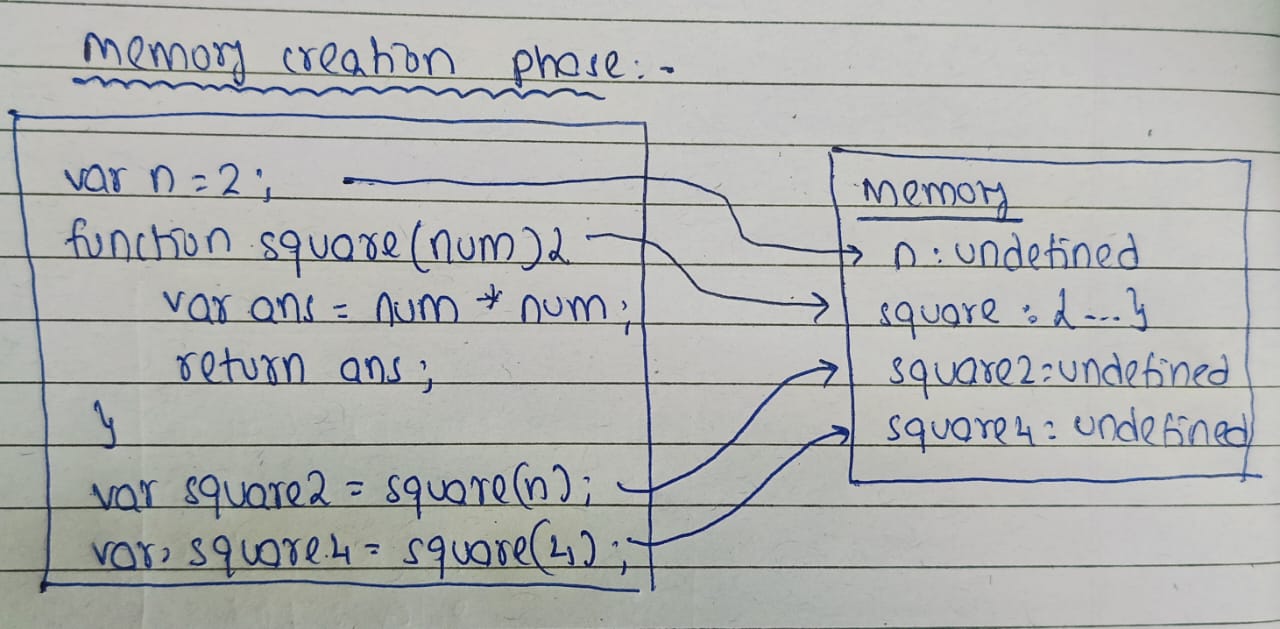 Memory creation phase:-
var n = 2;
function square(num){
var ans = num * num;
return ans;
}
var square2 = square(n);
var square4 = square(4);
Memory
n : undefined
square : {...}
square2 : undefined
square4 : undefined